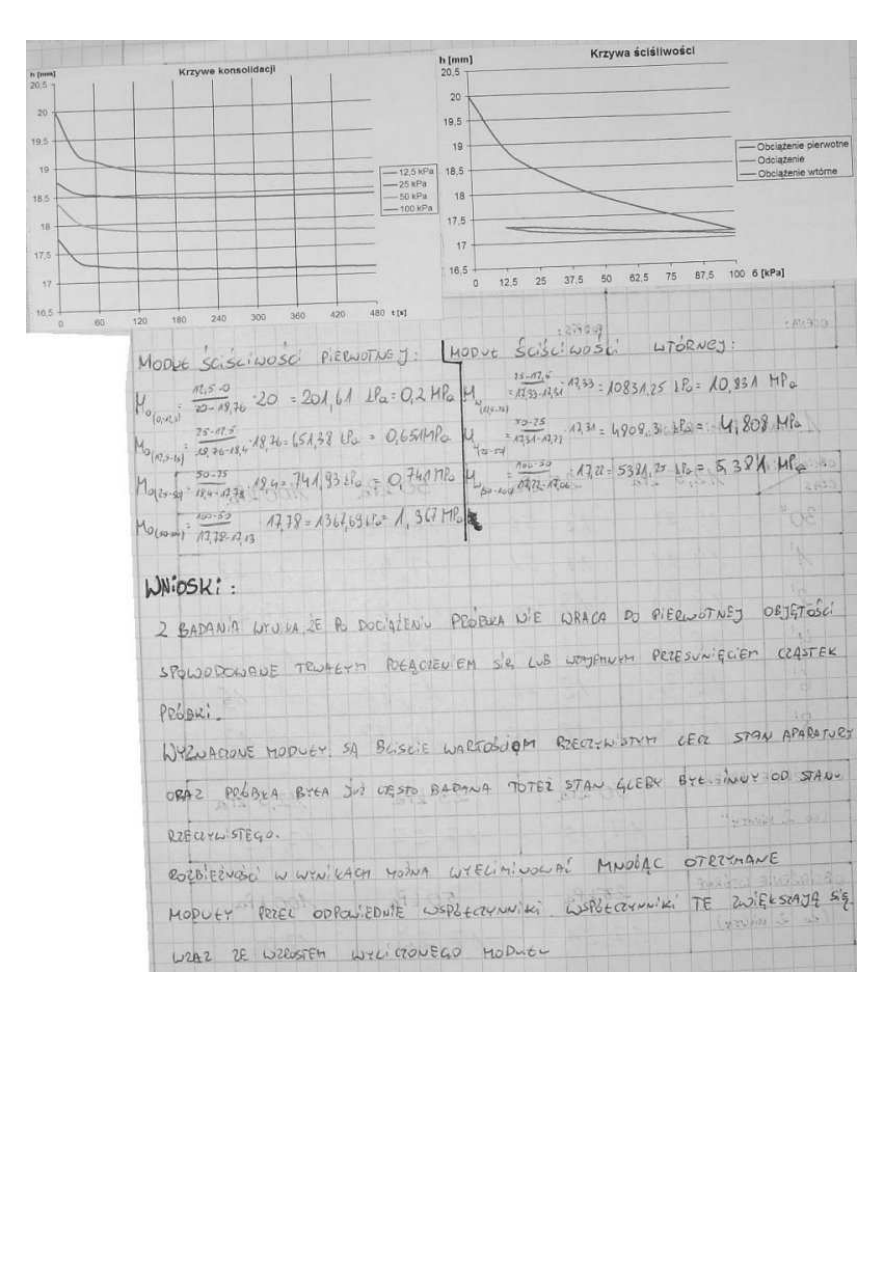 Krzywe konsolidacji
h [mm]
20,5
20
19,5
19
18,5
18
17,5
17
16,5
0 60 120 180 240 300 360 420 480 t [s]
12,5 kPa
25 kPa
50 kPa
100 kPa
Krzywa ściśliwości
h [mm]
20,5
20
19,5
19
18,5
18
17,5
17
16,5
0 12,5 25 37,5 50 62,5 75 87,5 100 6 [kPa]
Obciążenie pierwotne
Odciążenie
Obciążenie wtórne
MODUŁ ŚCIŚLIWOŚCI PIERWOTNEJ:
M₀(0-12,5) = 12,5-0/20-18,76 · 20 = 201,61 kPa = 0,2 MPa
M₀(12,5-25) = 25-12,5/18,76-18,4 · 18,76 = 651,38 kPa = 0,651 MPa
M₀(25-50) = 50-25/18,4-17,78 · 18,4 = 741,93 kPa = 0,741 MPa
M₀(50-100) = 100-50/17,78-17,13 · 17,78 = 1367,69 kPa = 1,367 MPa
MODUŁ ŚCIŚLIWOŚCI WTÓRNEJ:
M = 25-12,5/17,33-17,31 · 17,33 = 10831,25 kPa = 10,831 MPa
M(25-50) = 50-25/17,31-17,22 · 17,31 = 4808,3 kPa = 4,808 MPa
M(50-100) = 100-50/17,22-17,06 · 17,22 = 5381,25 kPa = 5,381 MPa
WNIOSKI:
Z BADANIA WYNIKA, ŻE PO DOCIĄŻENIU PRÓBKA NIE WRACA DO PIERWOTNEJ OBJĘTOŚCI
SPOWODOWANE TRWAŁYM POŁĄCZENIEM SIĘ LUB PRZESUNIĘCIEM CZĄSTEK
PRÓBKI.
WYZNACZONE MODUŁY SĄ BLISKIE WARTOŚCIOM RZECZYWISTYM LECZ STAN APARATURY
ORAZ PRÓBKA BYŁA JUŻ CZĘSTO BADANA TOTEŻ STAN GLEBY BYŁ INNY OD STANU
RZECZYWISTEGO.
ROZBIEŻNOŚCI W WYNIKACH MOŻNA WYELIMINOWAĆ MNOŻĄC OTRZYMANE
MODUŁY PRZEZ ODPOWIEDNIE WSPÓŁCZYNNIKI. WSPÓŁCZYNNIKI TE ZWIĘKSZAJĄ SIĘ
WRAZ ZE WZROSTEM WYLICZONEGO MODUŁU